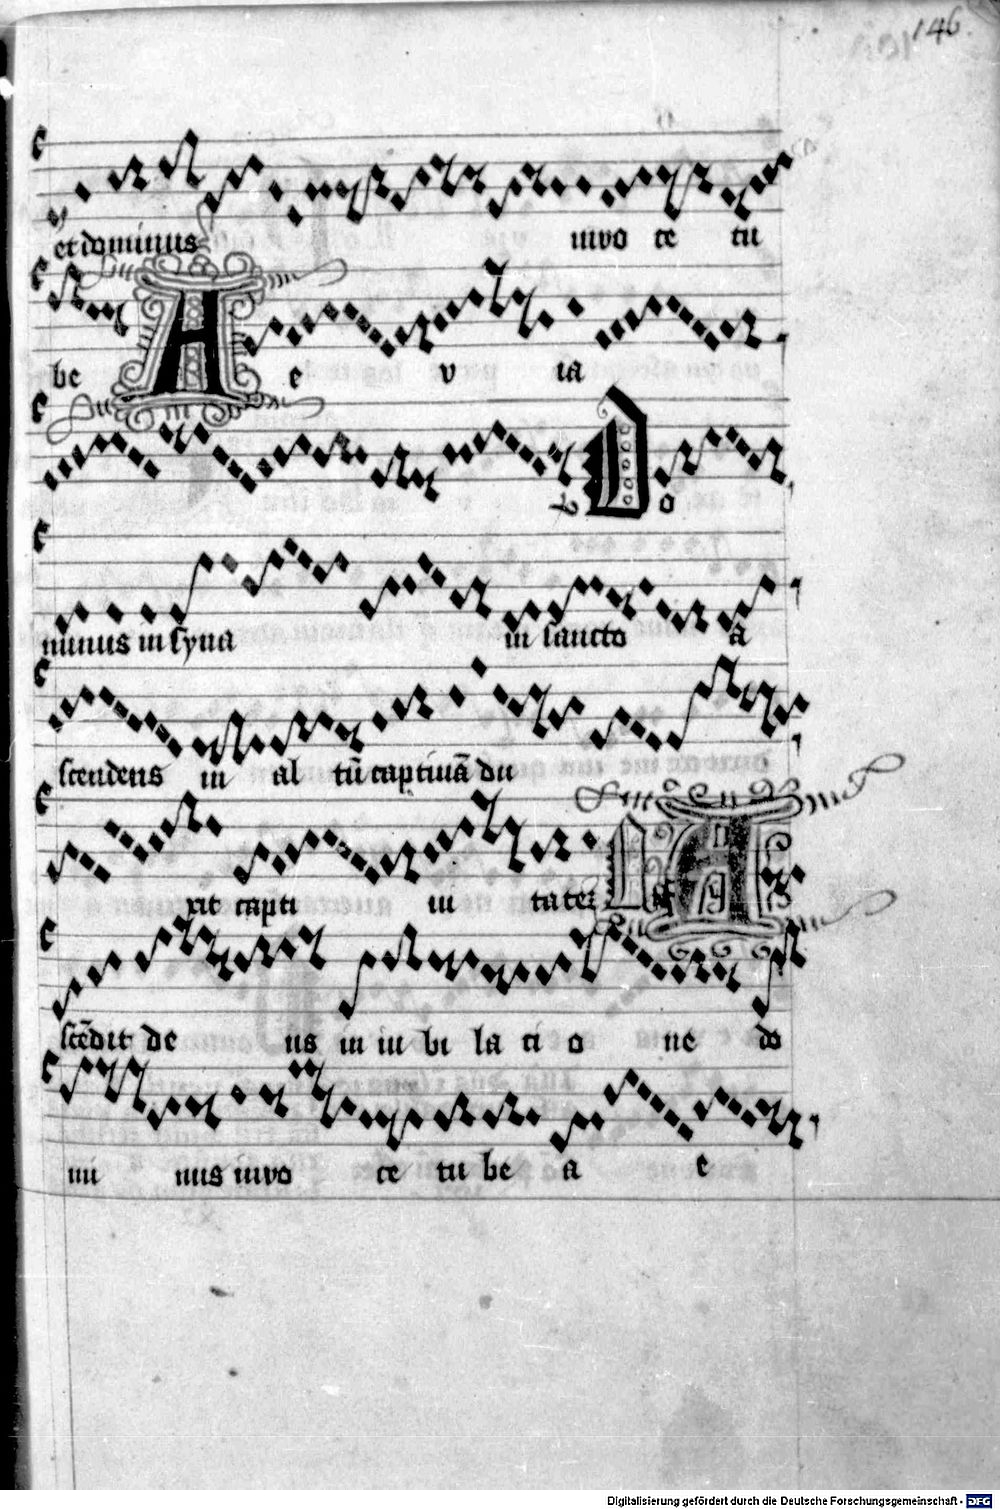 146.
et dominus in vo ce tu
be A e v ia
V Do
minus in syna in sancto a
scendens in al tū captivā du
xit capti ui tatez A
scēdit de us in iu bi la ci o ne do
mi nus in vo ce tu be a e
Digitalisierung gefördert durch die Deutsche Forschungsgemeinschaft - DFG